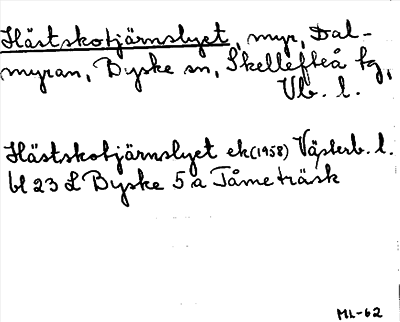 Hästskotjärnslyet, myr, Dal-
myran, Byske sn, Skellefteå tg,
Vb. l.
Hästskotjärnslyet ek (1958) Västerb. l.
bl 23 L Byske 5 a Tåmeträsk
ML-62